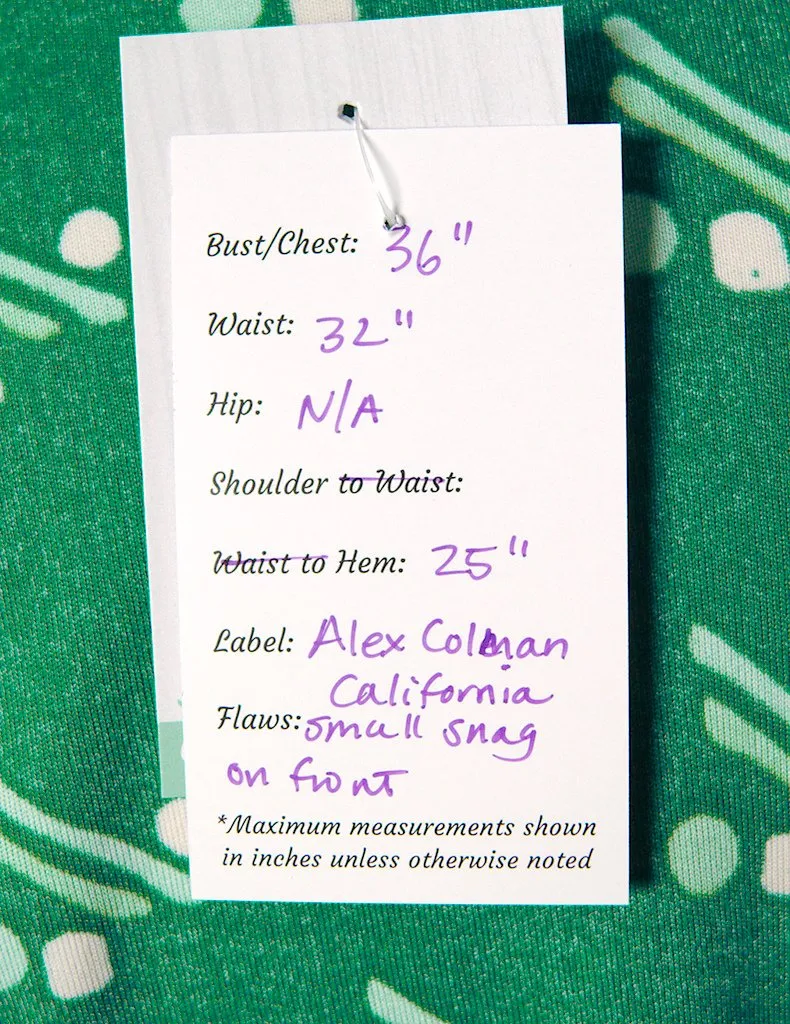 Bust/Chest: 36"
Waist: 32"
Hip: N/A
Shoulder to Waist:
Waist to Hem: 25"
Label: Alex Colman
California
Flaws: small snag
on front
*Maximum measurements shown
in inches unless otherwise noted